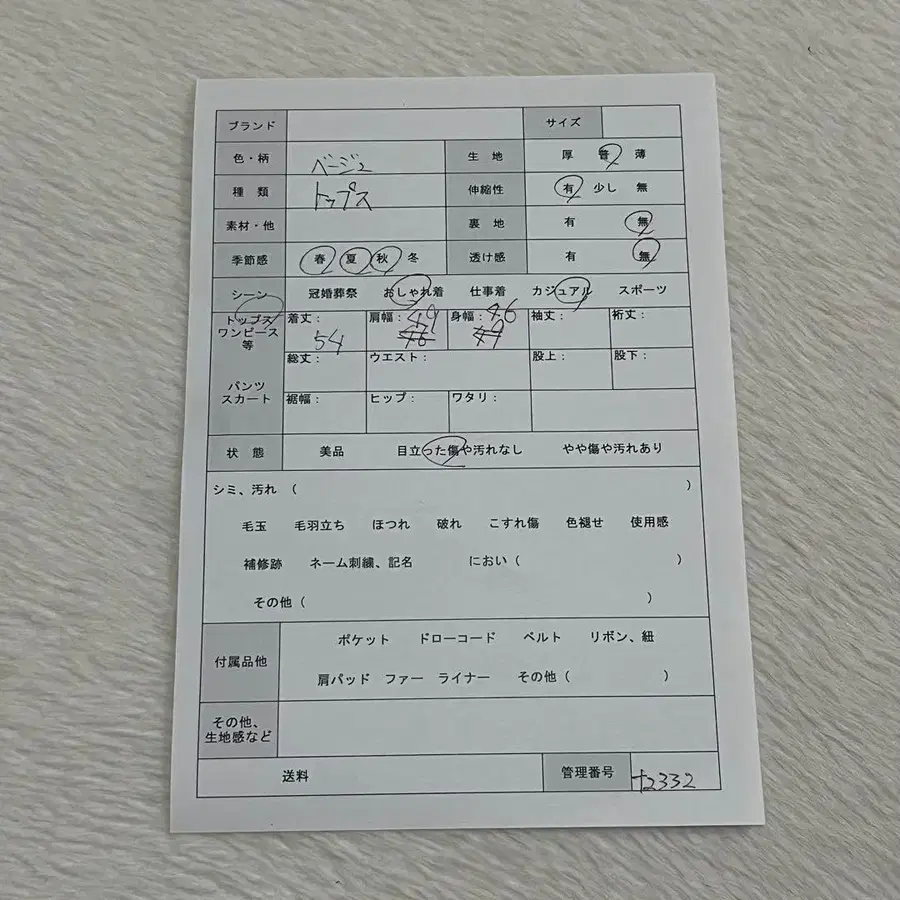 ブランド サイズ
色・柄 ベージュ 生 地 厚 普 薄
種 類 トップス 伸縮性 有 少し 無
素材・他 裏 地 有 無
季節感 春 夏 秋 冬 透け感 有 無
シーン 冠婚葬祭 おしゃれ着 仕事着 カジュアル スポーツ
トップス 着丈: 肩幅: 49 身幅: 46 袖丈: 裄丈:
ワンピース 54 46 49
等
総丈: ウエスト: 股上: 股下:
パンツ
スカート 裾幅: ヒップ: ワタリ:
状 態 美品 目立った傷や汚れなし やや傷や汚れあり
シミ、汚れ ( )
毛玉 毛羽立ち ほつれ 破れ こすれ傷 色褪せ 使用感
補修跡 ネーム刺繍、記名 におい ( )
その他 ( )
ポケット ドローコード ベルト リボン、紐
付属品他
肩パッド ファー ライナー その他 ( )
その他、
生地感など
送料 管理番号 t2332